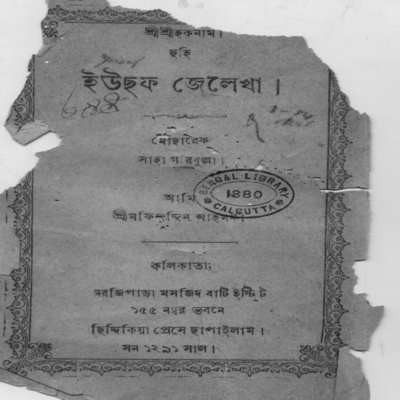 শ্রীশ্রীহকনাম।
ছহি
ইউছফ জেলেখা।
মোছারেফ
সাহা গরিবুল্লা।
আমি
শ্রীমফিজদ্দিন আহম্মদ।
BENGAL LIBRARY
1880
CALCUTTA
কলিকাতা
দরজিপাড়া মসজিদ বাটি ইস্টিট
১৫৫ নম্বর ভবনে
ছিদ্দিকিয়া প্রেসে ছাপাইলাম।
সন ১২৯১ সাল।